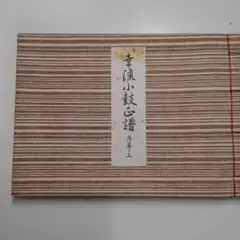 幸流小鼓正譜